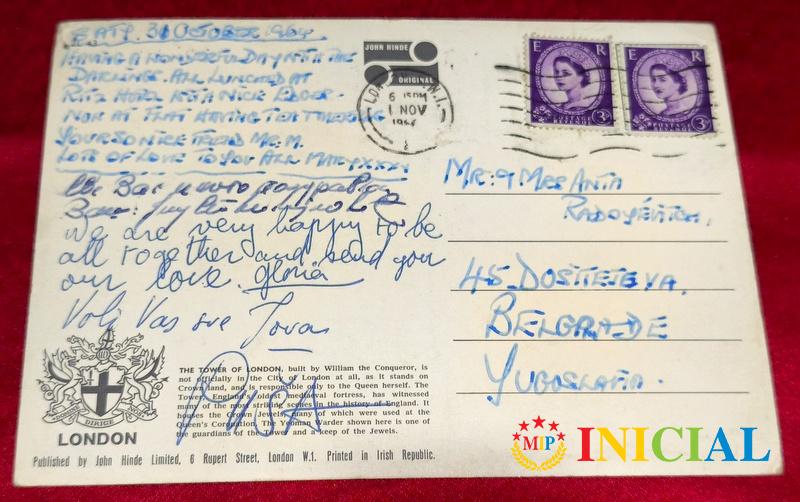 SATY. 31 OCTOBER 1964
HAVING A WONDERFUL DAY WITH THE
DARLINGS. ALL LUNCHED AT
RITZ HOTEL
NOW AT FLAT HAVING TEA
YOUR SO NICE FRIEND MR. M.
LOTS OF LOVE TO YOU ALL MARY XXXX
Вас много
We are very happy to be
all together and send you
our love. Gloria
Voli Vas sve Jovan
JOHN HINDE
ORIGINAL
LONDON W.1.
6 15PM
1 NOV
1964
E R
POSTAGE
REVENUE
3D
E R
POSTAGE
REVENUE
3D
MR. & MRS ANTA
RADOYÉVITCH.
45 DOSITEYEVA.
BELGRADE
YUGOSLAVIA.
THE TOWER OF LONDON, built by William the Conqueror, is
not officially in the City of London at all, as it stands on
Crown land, and is responsible only to the Queen herself. The
Tower, England's oldest medieval fortress, has witnessed
many of the most striking scenes in the history of England. It
houses the Crown Jewels, many of which were used at the
Queen's Coronation. The Yeoman Warder shown here is one of
the guardians of the Tower and a keep of the Jewels.
DIRIGE
LONDON
Published by John Hinde Limited, 6 Rupert Street, London W.1. Printed in Irish Republic.
MIP INICIAL